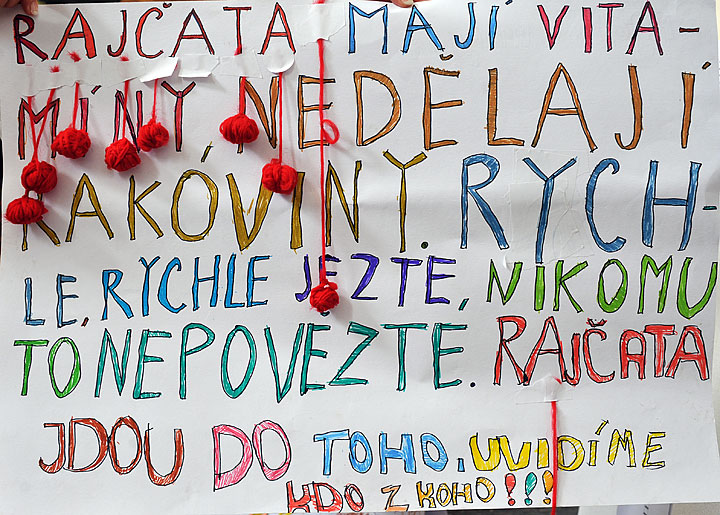 RAJČATA MAJÍ VITA-
MÍNY, NEDĚLAJÍ
KAKOVINY. RYCH-
LE, RYCHLE JEZTE, NIKOMU
TO NEPOVĚZTE. RAJČATA
JDOU DO TOHO, UVIDÍME
KDO Z KOHO!!!